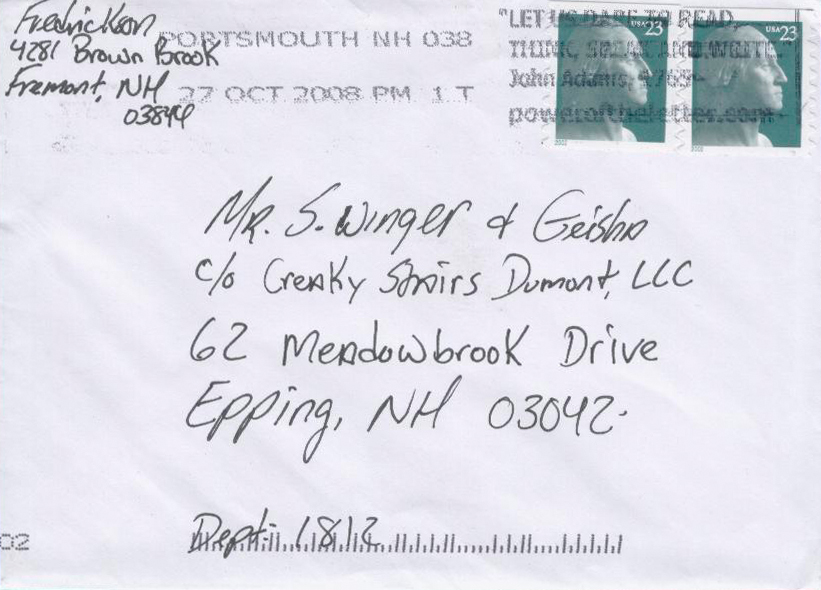 Fredrickson
4281 Brown Brook
Fremont, NH
03844
PORTSMOUTH NH 038
27 OCT 2008 PM 1 T
"LET US DARE TO READ,
THINK, SPEAK AND WRITE."
John Adams, 1765
poweroftheletter.com
USA 23
USA 23
2002
Mr. S. Winger & Geisha
c/o Creaky Stairs Dumont, LLC
62 Meadowbrook Drive
Epping, NH 03042.
Dept. 1812
02